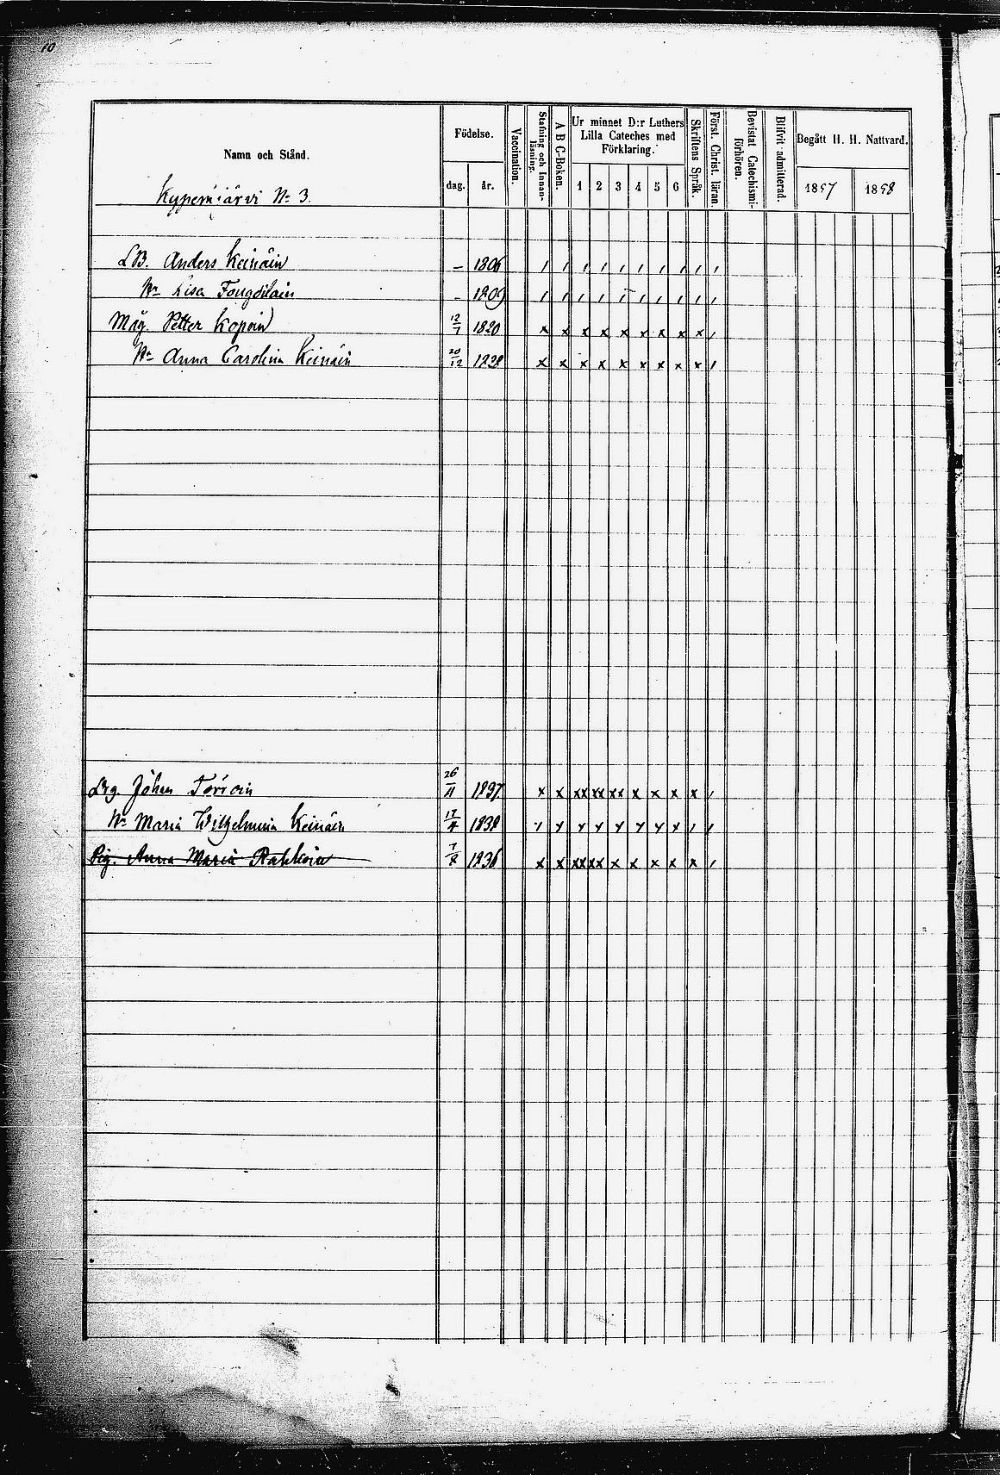 10
Namn och Stånd.
Födelse.
dag.
år.
Vaccination.
Stafning och Innanläsning.
A B C-Boken.
Ur minnet D:r Luthers Lilla Cateches med Förklaring.
1 2 3 4 5 6
Skriftens Språk.
Först. Christ. läran.
Bevistat Catechismi-förhören.
Blifvit admitterad.
Begått H. H. Nattvard.
1857 1858
Kypernjärvi No 3.
LB. Anders Keinäin – 1806
Hu Lisa – 1809
Måg. Petter Kopoin 12/7 1820
Hu Anna Carolina Keinäin 20/12 1828
Johan 26/11 1837
Hu Maria Wilhelmina Keinäin 17/4 1838
Pig. Anna Maria 1836